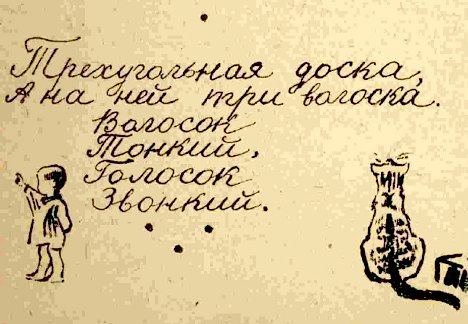 Трехугольная доска,
А на ней три волоска.
Волосок
Тонкий,
Голосок
Звонкий.